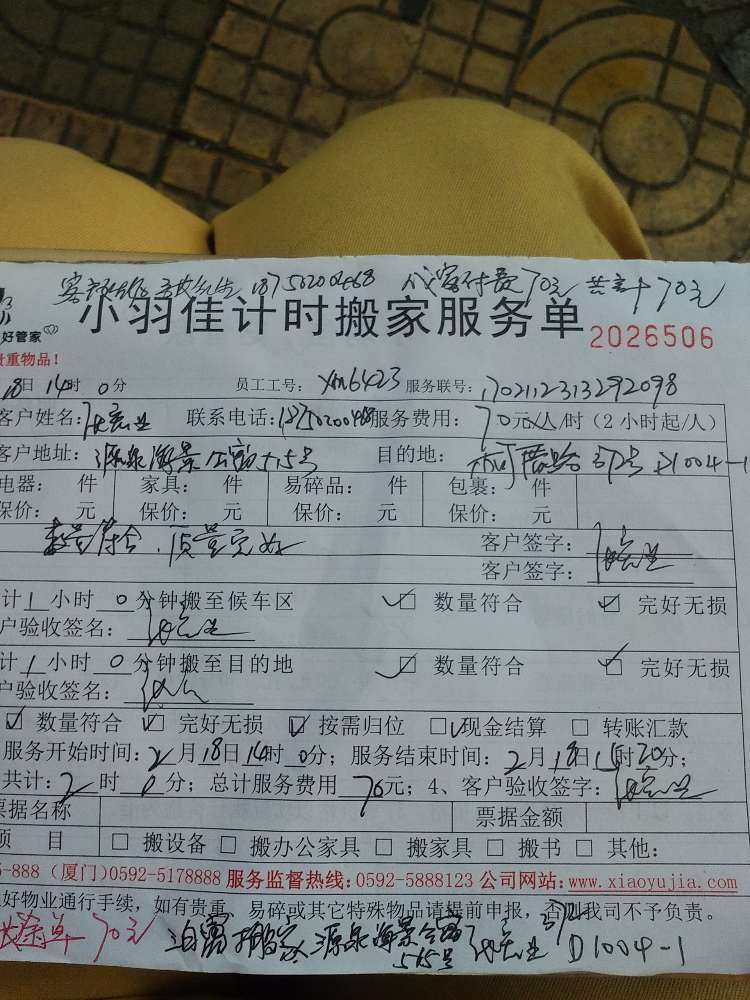 18750200468 代客付费70元 共计70元
好管家
小羽佳计时搬家服务单 2026506
贵重物品！
18日 14时 0分 员工工号: XM6423 服务联号: 1702112313292098
客户姓名: 联系电话: 18750200468 服务费用: 70元/人/时（2小时起/人）
客户地址: 源泉海景公寓515号 目的地: D1004-1
电器: 件 家具: 件 易碎品: 件 包裹: 件
保价: 元 保价: 元 保价: 元 保价: 元
数量符合、质量完好 客户签字:
客户签字:
计1小时0分钟搬至候车区 ☑ 数量符合 ☑ 完好无损
户验收签名:
计1小时0分钟搬至目的地 ☑ 数量符合 ☑ 完好无损
户验收签名:
☑ 数量符合 ☑ 完好无损 ☑ 按需归位 ☑ 现金结算 □ 转账汇款
服务开始时间: 2月18日14时0分; 服务结束时间: 2月18日15时30分;
共计: 2时0分; 总计服务费用 70元; 4、客户验收签字:
票据名称 票据金额
项 目 □ 搬设备 □ 搬办公家具 □ 搬家具 □ 搬书 □ 其他:
5-888（厦门）0592-5178888 服务监督热线: 0592-5888123 公司网站: www.xiaoyujia.com
好物业通行手续，如有贵重、易碎或其它特殊物品请提前申报，否则我司不予负责。
70元 搬家 源泉海景公寓
515号 D1004-1